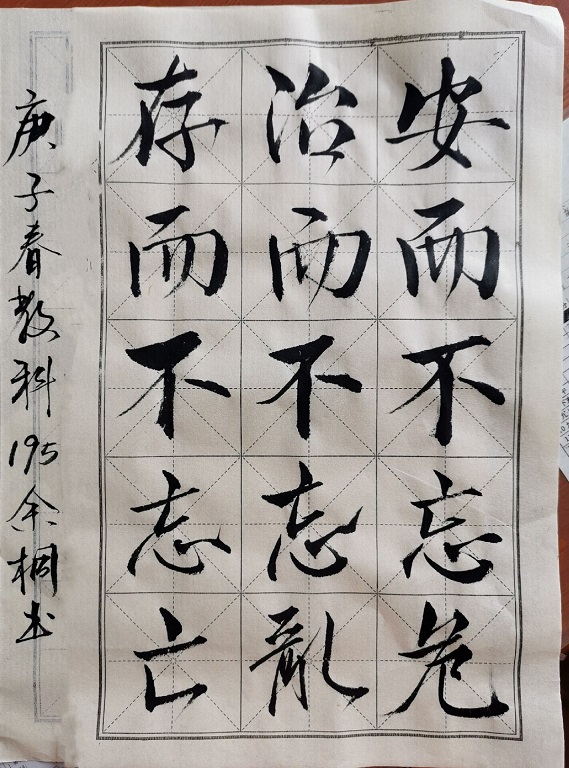 安而不忘危
治而不忘亂
存而不忘亡
庚子春教科195余桐书